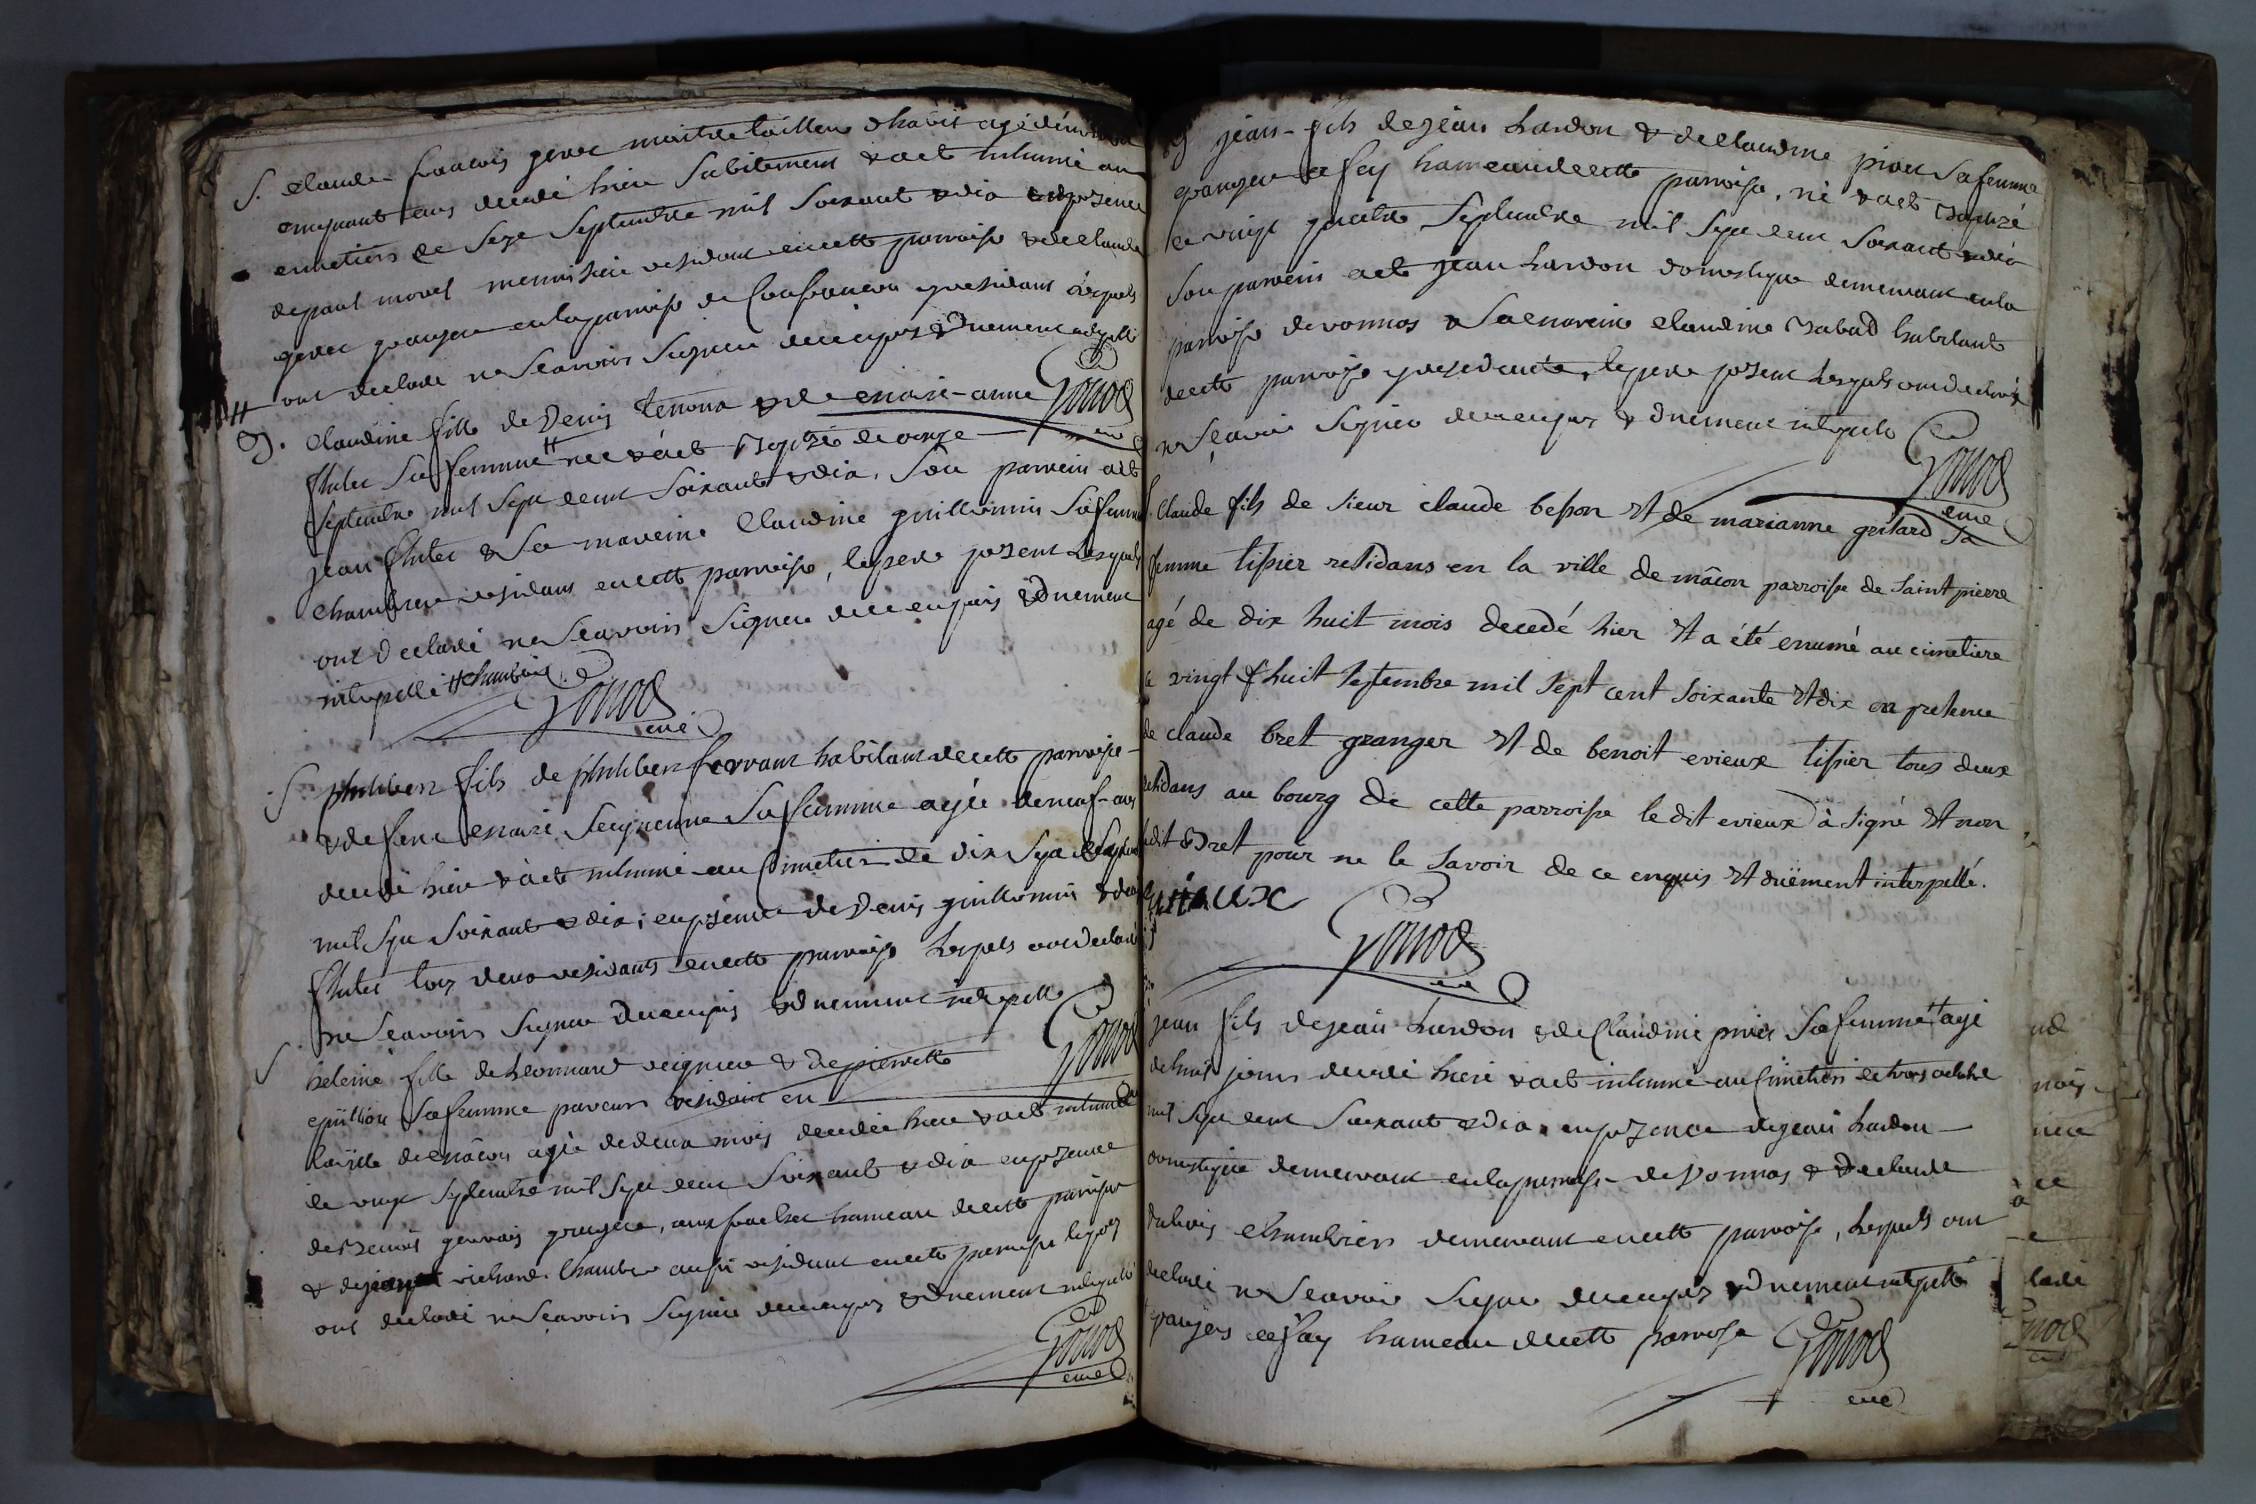 S. Claude françois gerer maitre tailleur d'habit agé d'environ
cinquant ans decedé hier subitement & a été inhumé au
cimetiere le seze septembre mil soixant & dix en presence
de paul morel mennisier residant en cette parroisse & de claude
gerer granger en la parroisse de Confrançon y residant lesquels
ont declaré ne scavoir signer de ce enquis & dument interpellé
Gonod
curé
B. Claudine fille de Denis tenoux & de marie-anne
flutet sa femme # née & a été baptisé le onze
septembre mil sept cent soixant & dix, son parrein a été
jean flutet & sa mareine Claudine guillomin sa femme
chambrier residans en cette parroisse, le pere present lesquels
ont declaré ne scavoir signer de ce enquis & dument
interpellé # chambrier
Gonod
curé
S. philibert fils de philibert ferrant habitant de cette parroisse
& de feue marie seigneme sa femme agée de neuf ans
decedé hier & a été inhumé au Cimetiere le dix sept septembre
mil sept soixant & dix, en presence de Denis guillomin & de
flutet tous deux residants en cette parroisse lesquels ont declaré
ne scavoir signer de ce enquis & dument interpellé
Gonod
S heleine fille de Leonnard veignier & de pierrette
guillon sa femme paveurs residant en
la ville de mâcon agée de deux mois decedée hier & a été inhumée
le vingt septembre mil sept cent soixant & dix en presence
de benoit gervais granger, aux fraches hameau de cette parroisse
& de richard chambrier aussi residant en cette parroisse lesquels
ont declaré ne scavoir signer de ce enquis & dument interpellé
Gonod
curé
B jean fils de jean hardon & de claudine prier sa femme
granger a fay hameau de cette parroisse, né & a été baptizé
le vingt quatre septembre mil sept cent soixant & dix
son parrein a été jean hardon domestique demeurant en la
parroisse de vonnas & sa mareine claudine rabad habitante
de cette parroisse y residante, le pere present lesquels ont declaré
ne scavoir signer de ce enquis & dument interpellé
Gonod
curé
Claude fils de sieur claude besson & de marianne gritard sa
femme tissier residans en la ville de mâcon parroisse de saint pierre
agé de dix huit mois decedé hier & a été enumé au cimetiere
le vingt & huit septembre mil sept cent soixante & dix en presence
de claude bret granger & de benoit evieux tissier tous deux
residans au bourg de cette parroisse le dit evieux à signé & non
ledit Bret pour ne le savoir de ce enquis & duëment interpellé.
Evieux
Gonod
curé
jean fils de jean hardon & de Claudine prier sa femme # agé
de huit jours decedé hier & a été inhumé au Cimetiere le trois octobre
mil sept cent soixant & dix en presence de jean hardon
domestique demeurant en la parroisse de Vonnas & de claude
dubois chambrier demeurant en cette parroisse, lesquels ont
declaré ne scavoir signer de ce enquis & dument interpellé
# grangers a fay hameau de cette parroisse
Gonod
curé